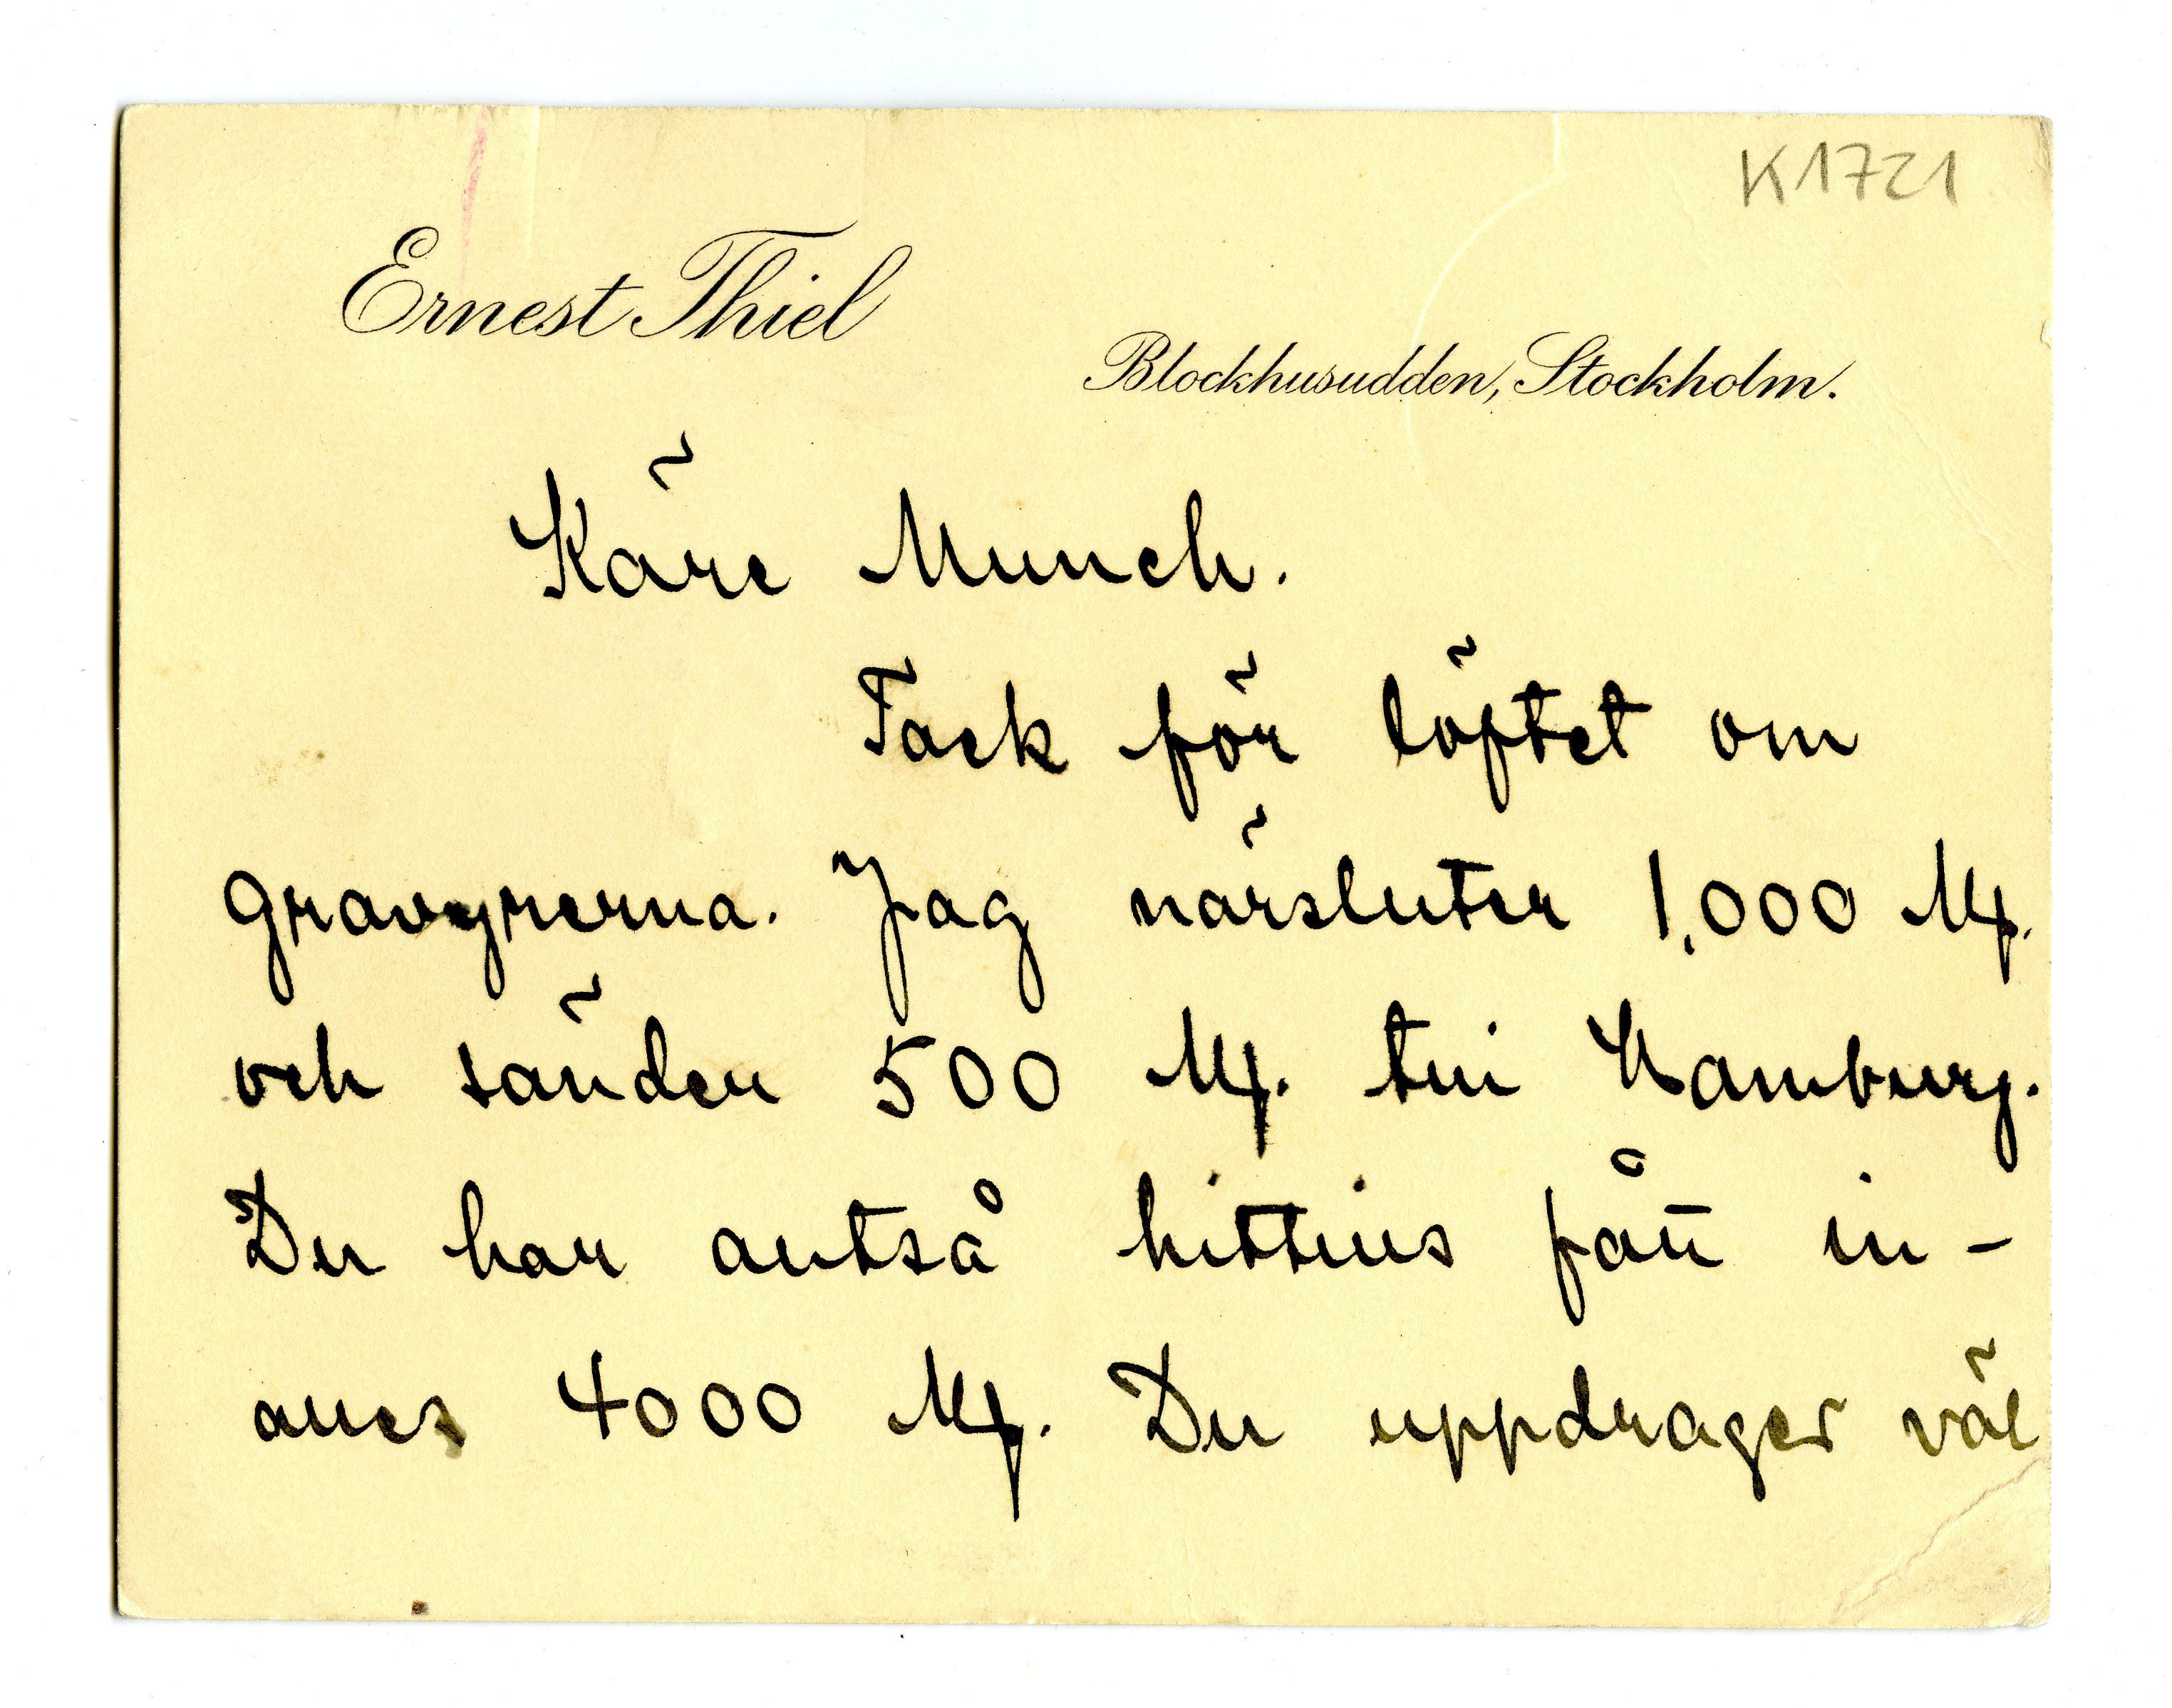 K1721
Ernest Thiel
Blockhusudden, Stockholm.
Käre Munch.
Tack för löftet om
gravyrerna. Jag närsluter 1,000 Mk.
och sänder 500 Mk. till Hamburg.
Du har alltså hittills fått in-
alles 4000 Mk. Du uppdrager väl